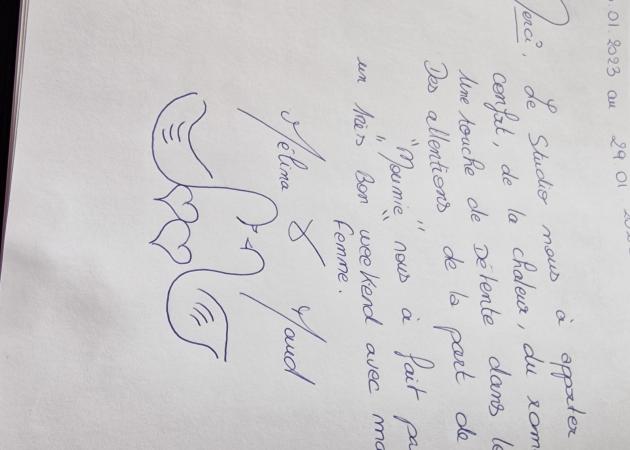 .01.2023 au 29.01
Merci, Le Studio nous à apporter
confort, de la chaleur, du rom
Une touche de Détente dans le
Des attentions de la part de
"Moumie" nous à fait pa
un très "Bon" weekend avec ma
femme.
Mélina & Maud